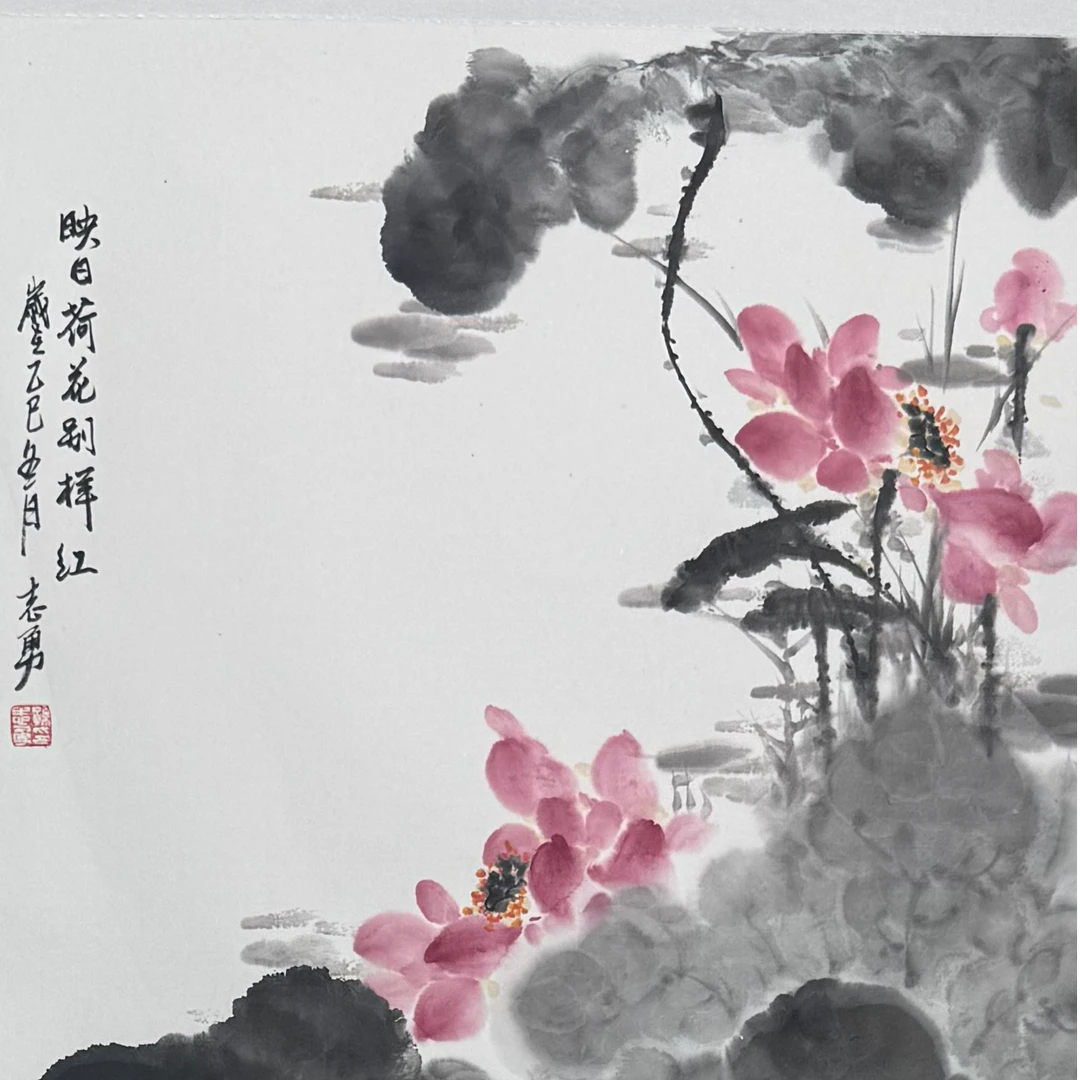 映日荷花别样红
歲在乙巳冬月 志勇